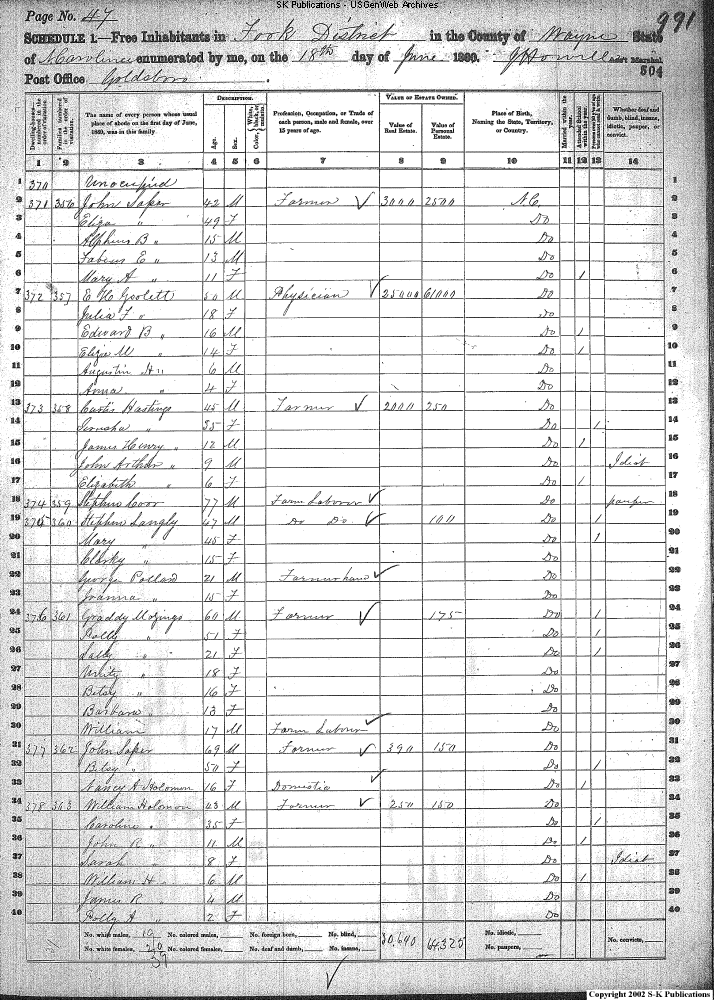 SK Publications - USGenWeb Archives
Page No. 47
991
SCHEDULE 1.—Free Inhabitants in Fork District in the County of Wayne State
of N Carolina enumerated by me, on the 18th day of June 1860. Ass't Marshal
Post Office Goldsboro.
504
DESCRIPTION. VALUE OF ESTATE OWNED.
Dwelling-houses numbered in the order of visitation. Families numbered in the order of visitation. The name of every person whose usual place of abode on the first day of June, 1860, was in this family. Age. Sex. Color, White, black, or mulatto. Profession, Occupation, or Trade of each person, male and female, over 15 years of age. Value of Real Estate. Value of Personal Estate. Place of Birth, Naming the State, Territory, or Country. Married within the year. Attended School within the year. Whether deaf and dumb, blind, insane, idiotic, pauper, or convict.
1 2 3 4 5 6 7 8 9 10 11 12 13 14
1 370 Unoccupied 1
2 371 356 John Saper 42 M Farmer 3000 2500 N.C. 2
3 Eliza " 49 F Do 3
4 Alpheus B " 15 M Do 4
5 E " 13 M Do 5
6 Mary A " 11 F Do 1 6
7 372 357 50 M Physician 25000 61000 Do 7
8 Julia F " 18 F Do 8
9 Edward B " 16 M Do 1 9
10 Eliza M " 14 F Do 1 10
11 Augustin H " 6 M Do 11
12 Anna " 4 F Do 12
13 373 358 Curtis Hastings 45 M Farmer 2000 250 Do 13
14 35 F Do 1 14
15 James Henry " 12 M Do 1 15
16 John Arthur " 9 M Do Idiot 16
17 Elizabeth " 6 F Do 1 17
18 374 359 Stephen Coor 77 M Farm Labourer Do pauper 18
19 375 360 Stephen Langly 47 M Do Do 100 Do 1 19
20 Mary " 45 F Do 1 20
21 " 15 F Do 21
22 George Pollard 21 M Farmerhand Do 22
23 Joanna " 15 F Do 23
24 376 361 Graddy Mozings 60 M Farmer 175 Do 1 24
25 Polly " 51 F Do 1 25
26 Sally " 21 F Do 1 26
27 Unity " 18 F Do 27
28 Betsy " 16 F Do 28
29 Barbara " 13 F Do 29
30 William 17 M Farm Labourer Do 30
31 377 362 John Saper 69 M Farmer 390 150 Do 31
32 Betsy " 50 F Do 1 32
33 Nancy A Holomon 16 F Domestic Do 1 33
34 378 363 William Holomon 43 M Farmer 250 150 Do 34
35 Caroline " 35 F Do 1 35
36 John R " 11 M Do 1 36
37 Sarah " 8 F Do Idiot 37
38 William H " 6 M Do 1 38
39 James R 4 M Do 39
40 Polly A " 2 F Do 40
No. white males, 19 No. colored males, No. foreign born, No. blind, 30,640 64325 No. idiotic, No. convicts,
No. white females, 20 No. colored females, No. deaf and dumb, No. insane, No. paupers,
39
Copyright 2002 S-K Publications